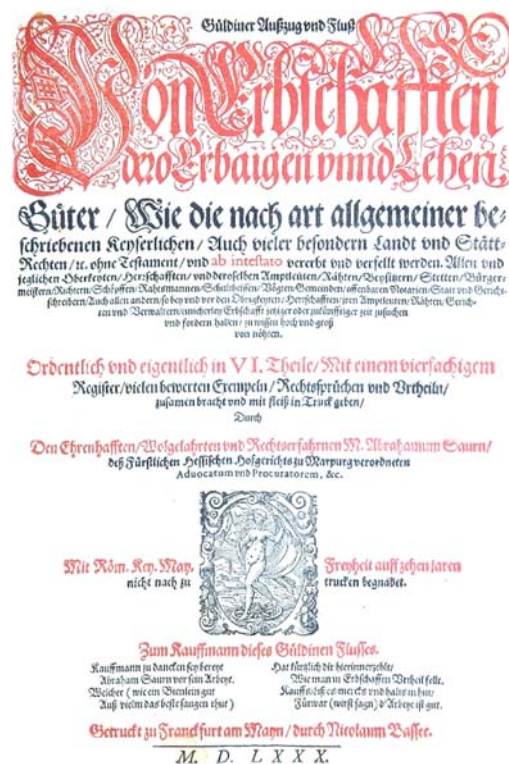 Güldiner Außzug vnd Fluß
Von Erbschafften
dero Erbaigen vnnd Lehen
Güter / Wie die nach art allgemeiner be-
schriebenen Keyserlichen / Auch vieler besondern Landt vnd Stätt-
Rechten / ꝛc. ohne Testament / vnd ab intestato vererbt vnd verfellt werden. Allen vnd
jeglichen Oberkeyten / Herrschafften / vnd deroselben Amptleuten / Rähten / Beysitzern / Stetten / Bürger-
meistern / Richtern / Schöpffen / Rahtsmannen / Schultheisen / Vögten / Gemeinden / offenbaren Notarien / Statt vnd Gericht-
schreibern / Auch allen andern / so bey vnd vor den Obrigkeyten / Herrschafften / jren Amptleuten / Rähten / Gerich-
ten vnd Verwaltern / einicherley Erbschafft jetziger oder zukünfftiger zeit zusuchen
vnd fordern haben / zu wissen hoch vnd groß
von nöhten.
Ordentlich vnd eigentlich in VI. Theile / Mit einem vierfachigem
Register / vielen bewerten Exempeln / Rechtssprüchen vnd Vrtheiln /
zusamen bracht vnd mit fleiß in Truck geben /
Durch
Den Ehrenhafften / Wolgelahrten vnd Rechtserfahrnen M. Abrahamum Saurn /
deß Fürstlichen Hessischen Hofgerichts zu Marpurg verordneten
Aduocatum vnd Procuratorem, &c.
Mit Röm. Key. May. Freyheit auff zehen Jaren
nicht nach zu trucken begnadet.
Zum Kauffmann dieses Güldinen Flusses.
Kauffmann zu dancken sey bereyt
Abraham Saurn vor sein Arbeyt.
Welcher (wie ein Bienlein gut
Auß vielm das beste saugen thut)
Hat kürtzlich dir hierinn erzehlt /
Wie man in Erbschafften Vrtheil fellt.
Kauffs / liß es mercks vnd halts in hut /
Fürwar (wirst sagn) d'Arbeyt ist gut.
Getruckt zu Franckfurt am Mayn / durch Nicolaum Bassee.
M. D. LXXX.